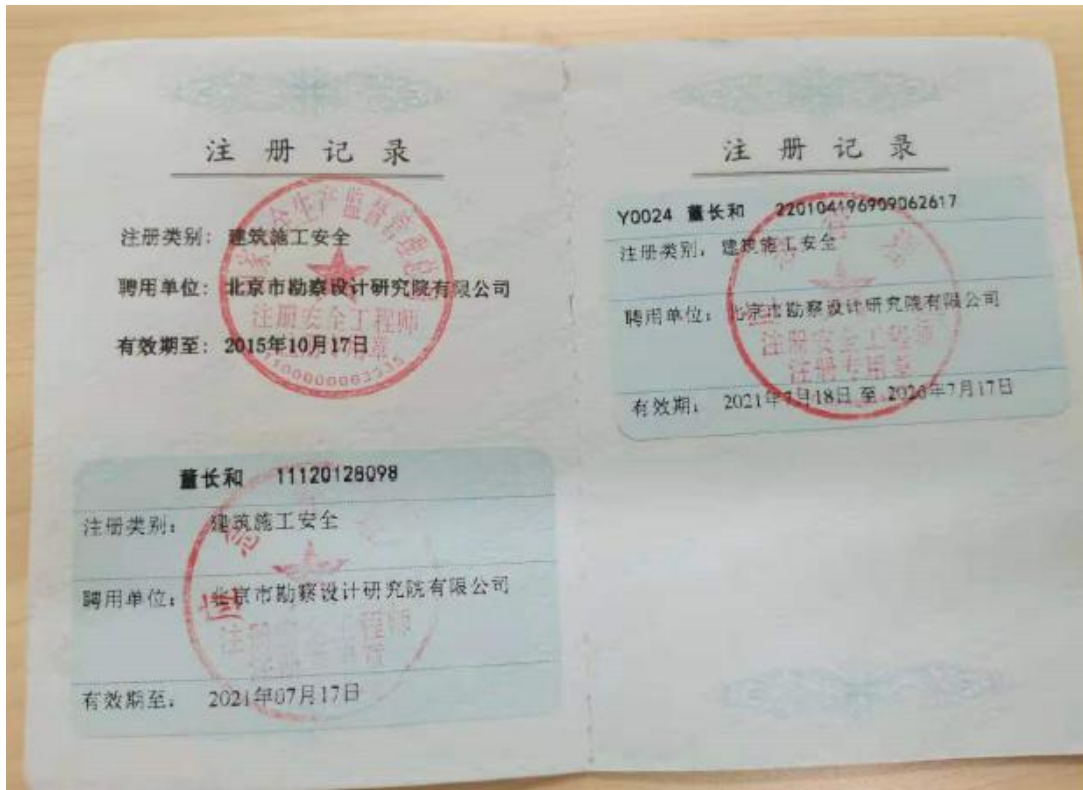 注册记录
注册类别：建筑施工安全
聘用单位：北京市勘察设计研究院有限公司
注册安全工程师
有效期至：2015年10月17日
董长和 11120128098
注册类别：建筑施工安全
聘用单位：北京市勘察设计研究院有限公司
注册安全工程师
有效期至：2021年07月17日
注册记录
Y0024 董长和 220104196909062617
注册类别：建筑施工安全
聘用单位：北京市勘察设计研究院有限公司
注册安全工程师
注册专用章
有效期：2021年7月18日 至 2026年7月17日